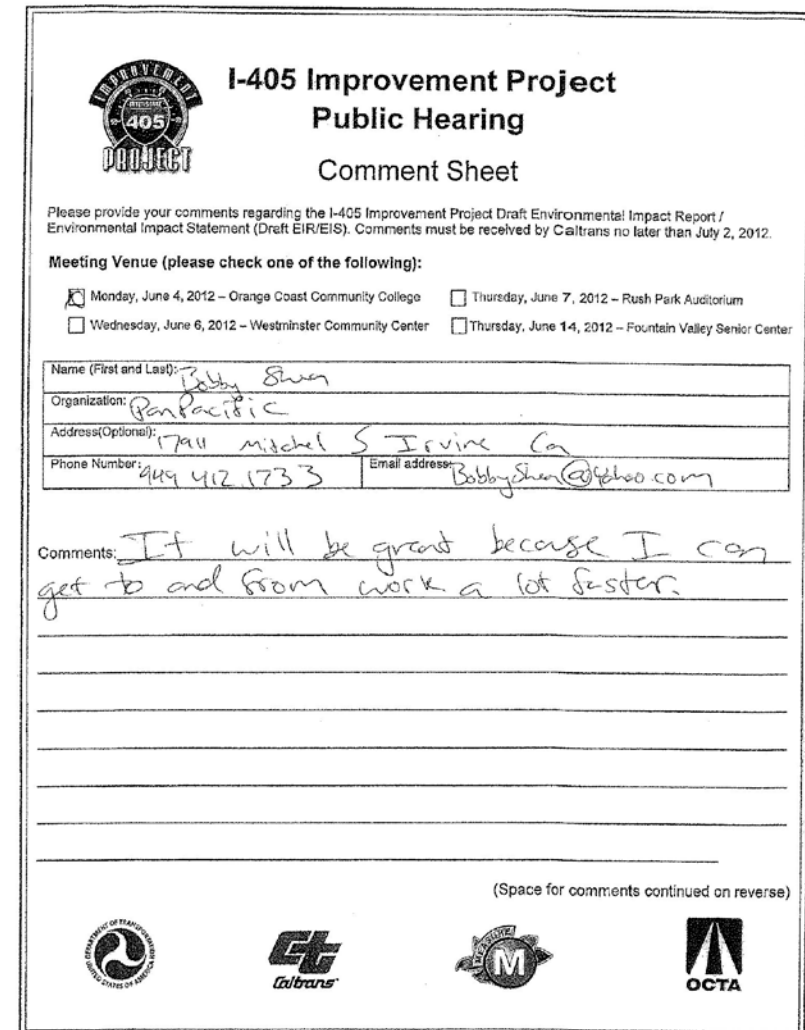 IMPROVEMENT
405
PROJECT
I-405 Improvement Project
Public Hearing
Comment Sheet
Please provide your comments regarding the I-405 Improvement Project Draft Environmental Impact Report /
Environmental Impact Statement (Draft EIR/EIS). Comments must be received by Caltrans no later than July 2, 2012.
Meeting Venue (please check one of the following):
Monday, June 4, 2012 – Orange Coast Community College
Thursday, June 7, 2012 – Rush Park Auditorium
Wednesday, June 6, 2012 – Westminster Community Center
Thursday, June 14, 2012 – Fountain Valley Senior Center
Name (First and Last): Bobby Shen
Organization: PanPacific
Address(Optional): 17911 Mitchel S Irvine Ca
Phone Number: 949 412 1733
Email address: BobbyShen@Yahoo.com
Comments: It will be great because I can
get to and from work a lot faster.
(Space for comments continued on reverse)
DEPARTMENT OF TRANSPORTATION
UNITED STATES OF AMERICA
Ct
Caltrans
MEASURE
M
OCTA